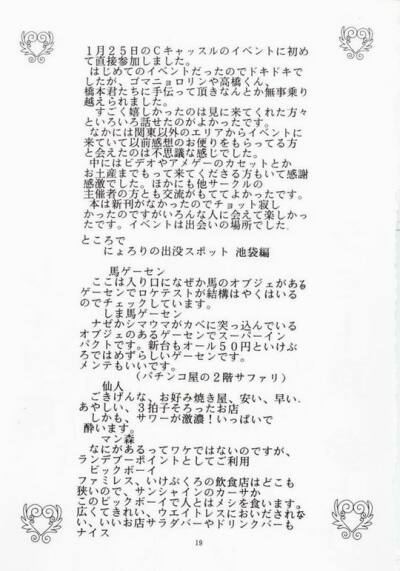 1月25日のCキャッスルのイベントに初め
て直接参加しました。
はじめてのイベントだったのでドキドキで
したが、ゴマニョロリンや高橋くん、
橋本君たちに手伝って頂きなんとか無事乗り
越えられました。
すごく嬉しかったのは見に来てくれた方々
といろいろ話せたのがよかったです。
なかには関東以外のエリアからイベントに
来ていて以前感想のお便りをもらってる方
と会えたのは不思議な感じでした。
中にはビデオやアメゲーのカセットとか
お土産までもって来てくださる方もいて感謝
感激でした。ほかにも他サークルの
主催者の方とも交流がもててよかったです。
本は新刊がなかったのでチョット寂し
かったのですがいろんな人に会えて楽しかっ
たです。イベントは出会いの場所でした.
ところで
にょろりの出没スポット 池袋編
馬ゲーセン
ここは入り口になぜか馬のオブジェがある
ゲーセンでロケテストが結構はやくはいる
のでチェックしています。
しま馬ゲーセン
ナゼかシマウマがカベに突っ込んでいる
オブジェのあるゲーセンでスーパーイン
パクトです。新台もオール50円といけぶ
ろではめずらしいゲーセンです。
メンテもいいです。
(パチンコ屋の2階サファリ)
仙人
ごきげんな、お好み焼き屋、安い、早い.
あやしい、3拍子そろったお店
しかも、サワーが激濃!いっぱいで
酔います。
マン森
なにがあるってワケではないのですが、
ランデブーポイントとしてご利用
ビックボーイ
ファミレス、いけぶくろの飲食店はどこも
狭いので、サンシャインのカーサか
このビックボーイで人とはメシを食います。
広くてきれい、ウエイトレスにおいだされな
い、いいお店サラダバーやドリンクバーも
ナイス
19